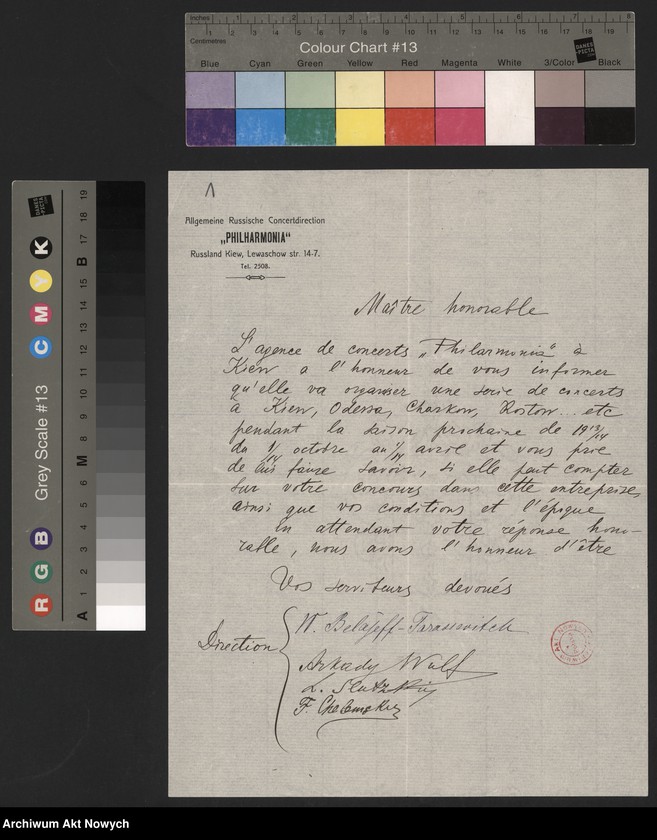 Inches 1 2 3 4 5 6 7 8
Centimetres 1 2 3 4 5 6 7 8 9 10 11 12 13 14 15 16 17 18 19
Colour Chart #13
DANES PICTA
Blue Cyan Green Yellow Red Magenta White 3/Color Black
Grey Scale #13
R G B C M Y K
DANES PICTA
A 1 2 3 4 5 6 M 8 9 10 11 12 13 14 15 B 17 18 19
1
Allgemeine Russische Concertdirection
„PHILHARMONIA“
Russland Kiew, Lewaschow str. 14-7.
Tel. 2508.
Maître honorable
L'agence de concerts „Philarmonia“ à
Kiew a l'honneur de vous informer
qu'elle va organiser une serie de concerts
à Kiew, Odessa, Charkow, Rostow... etc
pendant la saison prochaine de 1913/14
du 1/14 octobre au 1/14 avril et vous prie
de lui faire savoir, si elle peut compter
sur votre concours dans cette entreprise,
ainsi que vos conditions et l'époque
En attendant votre réponse hono-
rable, nous avons l'honneur d'être
Vos serviteurs devoués
Direction
W. Belajeff-Tarassevitch
Arkady Wulf
L. Slutzky
F.
Archiwum Akt Nowych